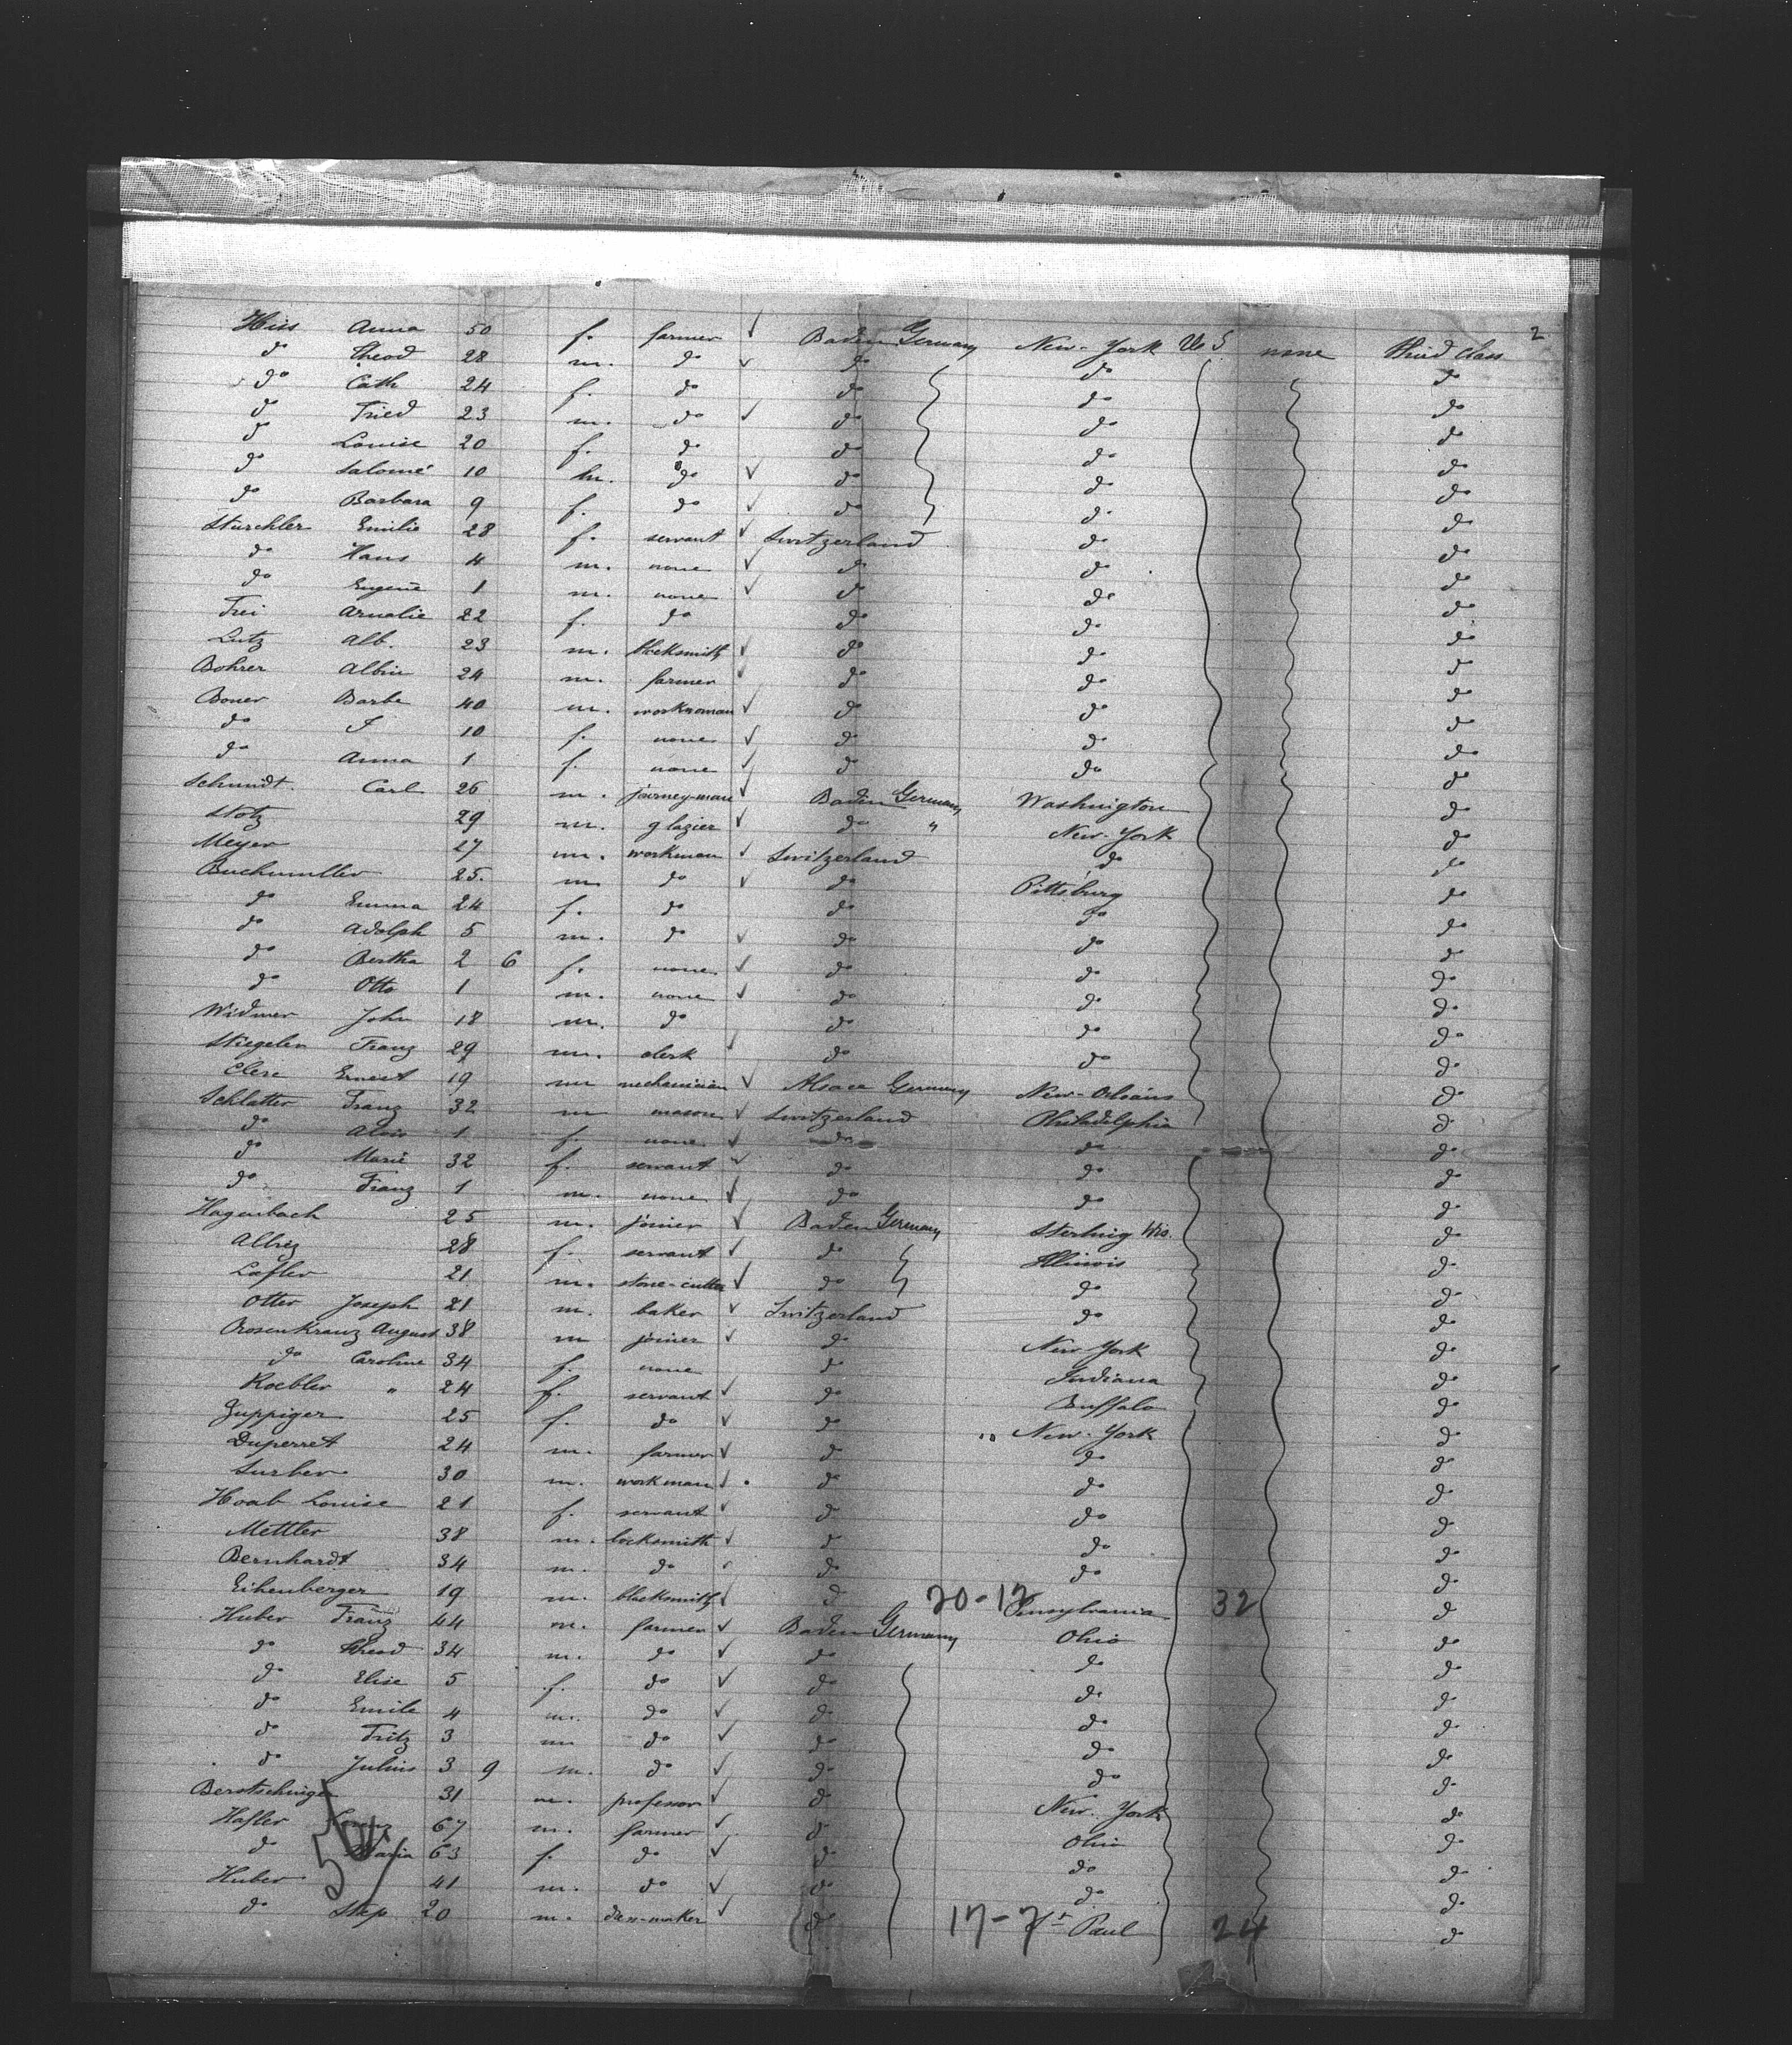 2
Hiss Anna 50 f. farmer ✓ Baden Germany New-York U S. none third class
do Theod 28 m. do ✓ do do do
do Cath 24 f. do do do do
do Fried 23 m. do ✓ do do do
do Louise 20 f. do do do do
do Salomé 10 m. do ✓ do do do
do Barbara 9 f. do ✓ do do do
Sturchler Emilie 28 f. servant ✓ Switzerland do do
do Hans 4 m. none ✓ do do do
do Eugene 1 m. none ✓ do do do
Frei Amalie 22 f. do do do do
Lutz Alb. 23 m. blacksmith ✓ do do do
Bohrer Albin 24 m. farmer ✓ do do do
Boner Barbe 40 m. workwoman ✓ do do do
do J 10 f. none ✓ do do do
do Anna 1 f. none ✓ do do do
Schmidt. Carl 26 m. journey-man ✓ Baden Germany Washington do
Stotz 29 m. glazier ✓ do " New-York do
Meyer 27 m. workman ✓ Switzerland do do
Buchmuller 25. m. do ✓ do Pittsburg do
do Emma 24 f. do do do do
do Adolph 5 m. do ✓ do do do
do Bertha 2 6 f. none ✓ do do do
do Otto 1 m. none ✓ do do do
Widmer John 18 m. do do do do
Stiegeler Franz 29 m. clerk ✓ do do do
Clere Ernest 19 m mechanician ✓ Alsace Germany New-Orleans do
Schlatter Franz 32 m mason ✓ Switzerland Philadelphia do
do Alois 1 f. none ✓ do do do
do Marie 32 f. servant ✓ do do do
do Franz 1 m. none ✓ do do do
Hagenbach 25 m. joiner ✓ Baden Germany Sterling Wis. do
Albiez 28 f. servant ✓ do Illinois do
Lafler 21 m. stone-cutter ✓ do do do
Otter Joseph 21 m. baker ✓ Switzerland do do
Rosenkranz August 38 m joiner ✓ do New York do
do Caroline 34 f. none do Indiana do
Koebler " 24 f. servant ✓ do Buffalo do
Guppiger 25 f. do ✓ do " New-York do
Duperret 24 m. farmer ✓ do do do
Surber 30 m. workman ✓ do do do
Hoab Louise 21 f. servant ✓ do do do
Mettler 38 m. locksmith ✓ do do do
Bernhardt 34 m. do ✓ do do do
Eihenberger 19 m. blacksmith ✓ do 20-12 Pensylvania 32 do
Huber Franz 44 m. farmer ✓ Baden Germany Ohio do
do Theod 34 m. do ✓ do do do
do Elise 5 f. do ✓ do do do
do Emile 4 m. do ✓ do do do
do Fritz 3 m do ✓ do do do
do Julius 3 9 m. do ✓ do do do
Berstschinger 31 m. professor ✓ do New-York do
Hafler 67 m. farmer ✓ do Ohio do
do Maria 63 f. do ✓ do do do
Huber 41 m. do ✓ do do do
do Step 20 m. dress-maker ✓ do 17-7 St Paul 24 do